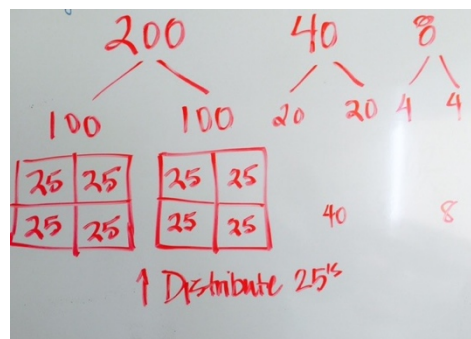 200 40 8
100 100 20 20 4 4
25 25 25 25
25 25 25 25 40 8
↑ Distribute 25's